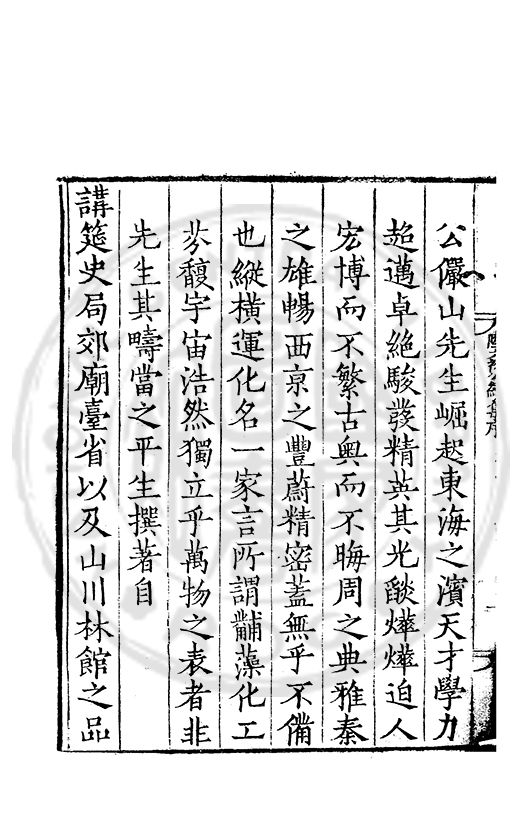 公儼山先生崛起東海之濱天才學力
超邁卓絶駿發精英其光燄爗爗迫人
宏博而不繁古奥而不晦周之典雅秦
之雄暢西京之豐蔚精密蓋無乎不備
也縱横運化名一家言所謂黼藻化工
芬馥宇宙浩然獨立乎萬物之表者非
先生其疇當之平生撰著自
講筵史局郊廟臺省以及山川林館之品